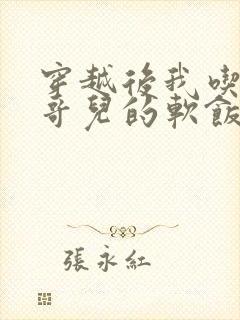 穿越後我喫
哥兒的軟飯
張永紅